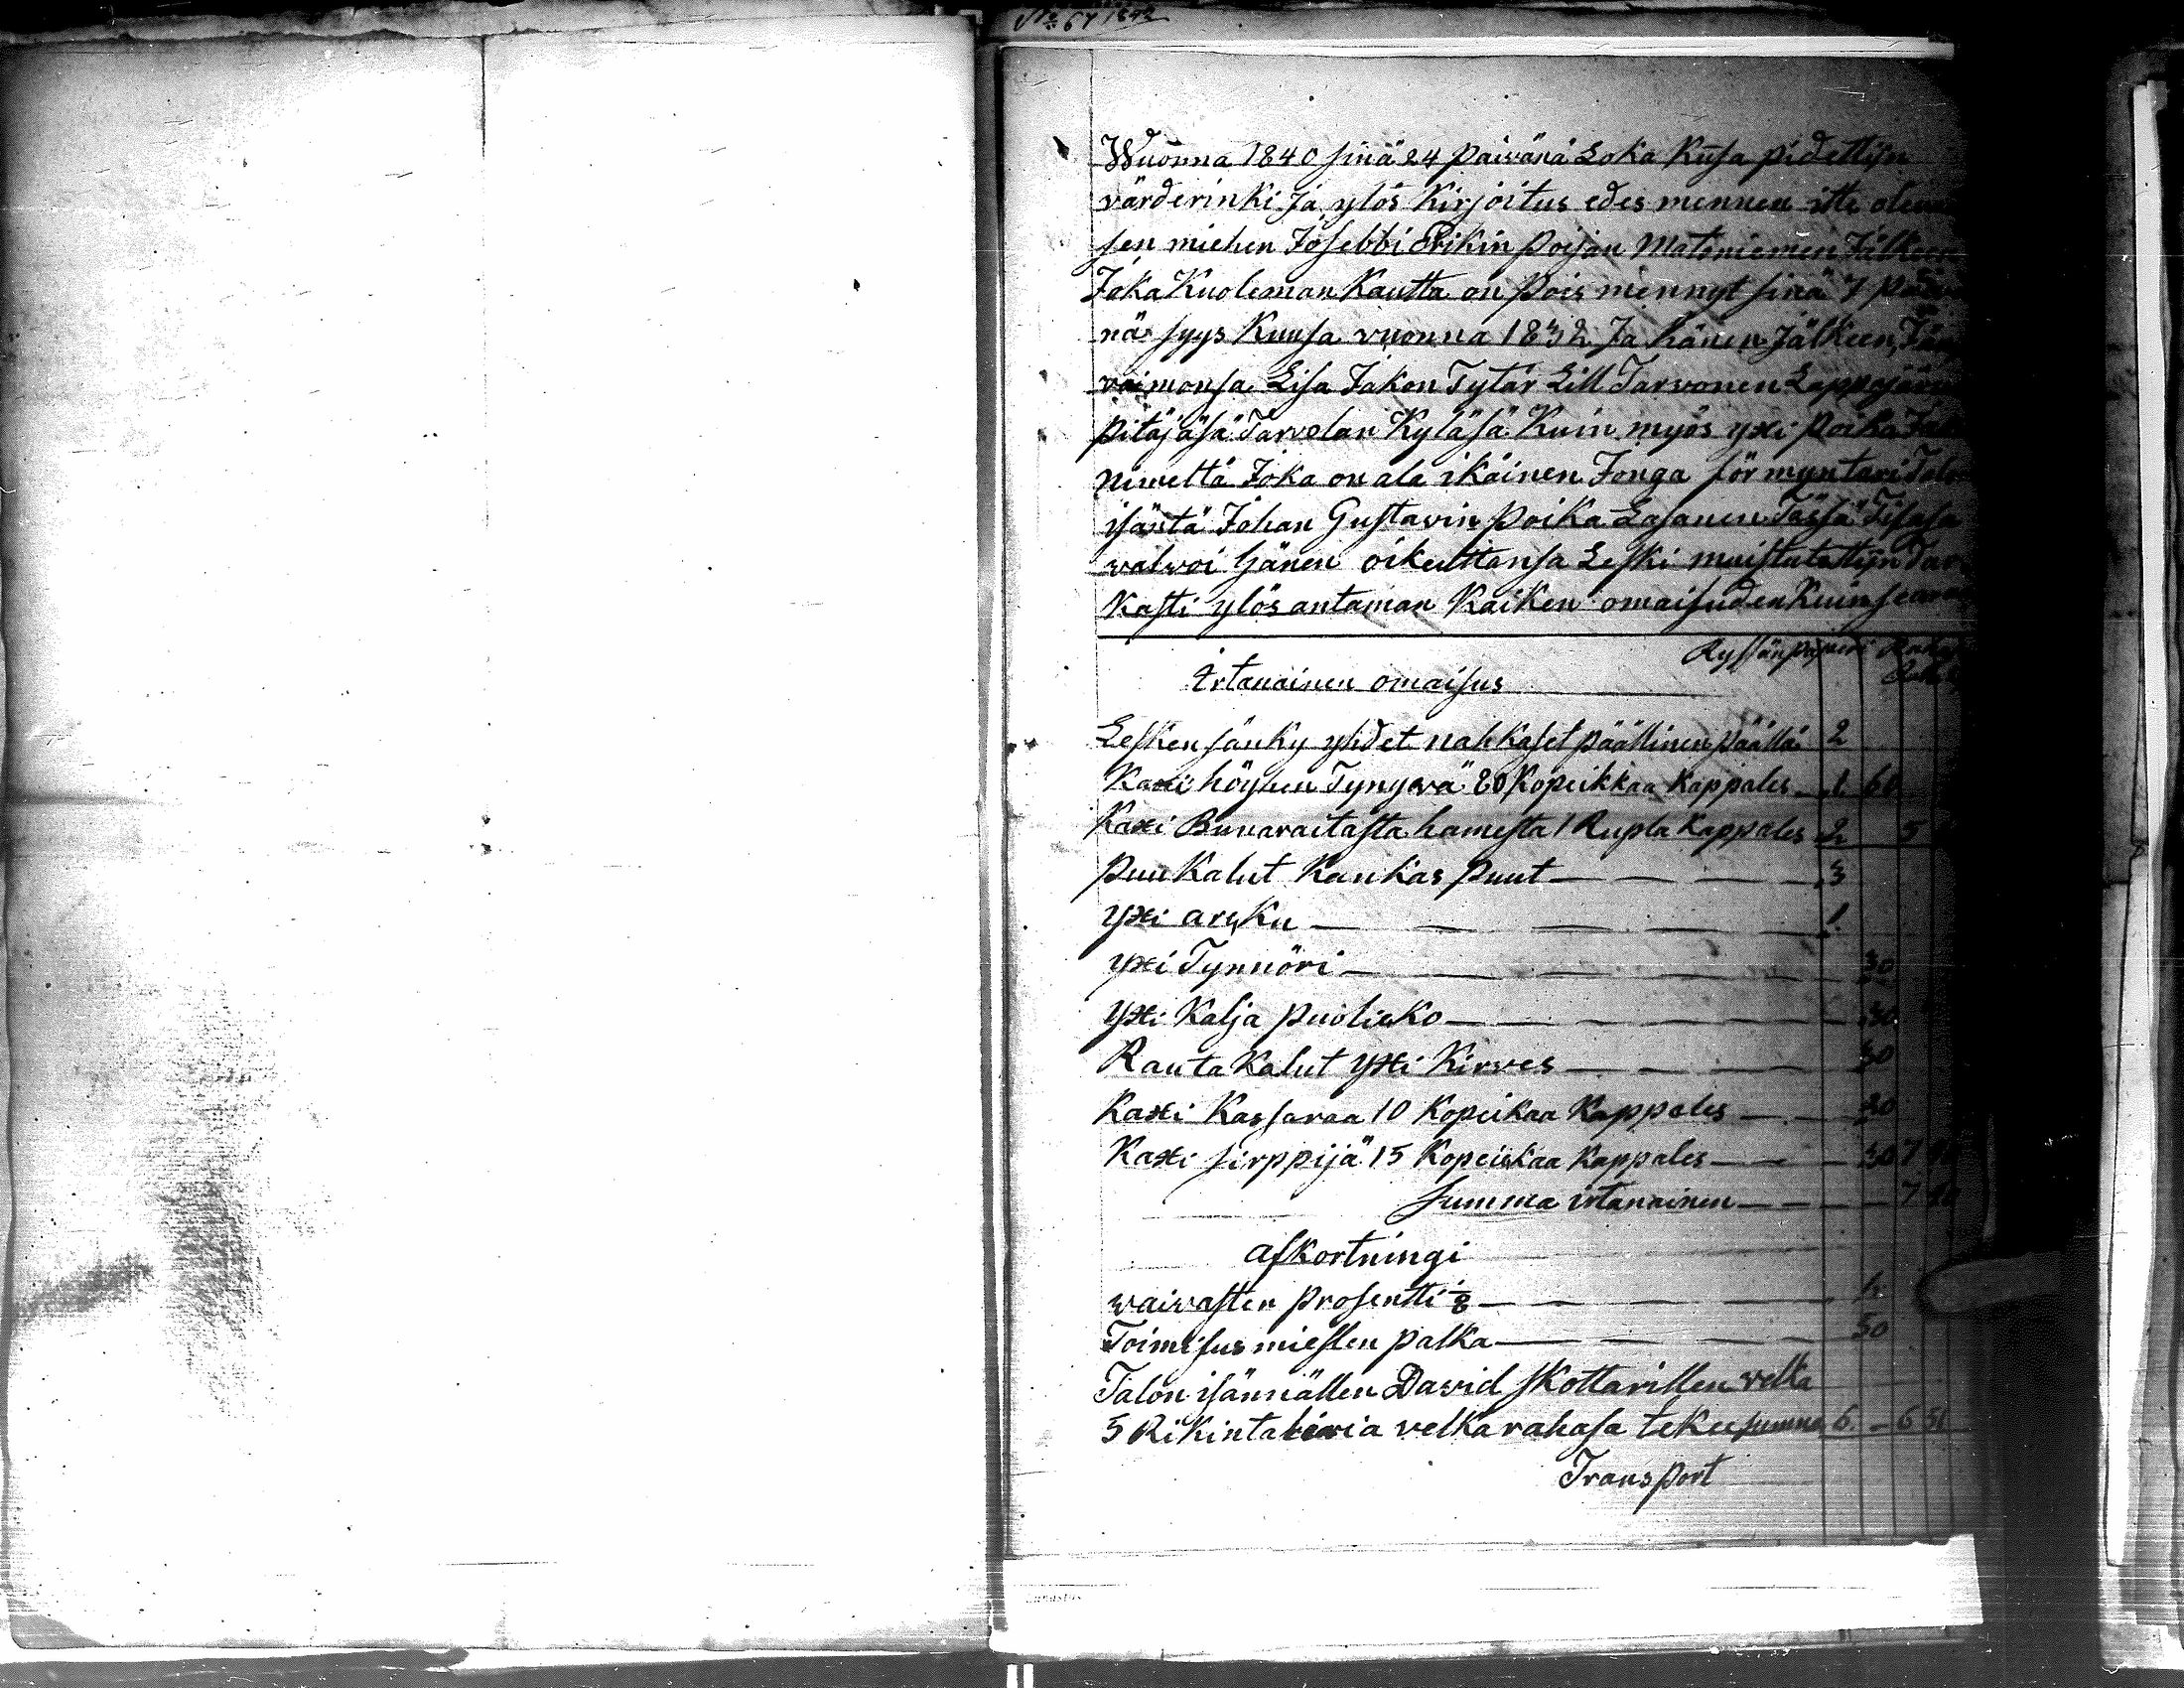 No 67 1842
Wuonna 1840 sinä 24 päivänä Loka Kusa pidettijn
värderinki Ja ylös Kirjoitus edes mennen itte
sen miehen Josebbi Erikin poijan Matoniemen Jälkeen
Joka Kuoleman Kautta on pois mennyt sinä 7
nä syys Kuusa vuonna 1832 Ja hänen Jälkeen
vaimonsa Lisa Jakon Tytär Lill Tarvonen
pitäjäsä Tarvolan Kyläsä Kuin myös yxi poika
nimeltä Joka on ala ikäinen Jonga förmyntari
isäntä Johan Gustavin poika Lasanen Tässä Tilasa
valvoi hänen oikeuttansa Leski muistutettijn
kasti ylös antaman Kaiken omaisuden Kuin
Ryssän
irtanainen omaisus
Lesken sänky yhdet nahkaset päällinen päällä 2
Kaxi höyhen Tynyvä 80 Kopeikkaa Kappales 1 60
Kaxi Buuvaraitasta hamesta 1 Rupla Kappales 2 5
puu Kalut Kankas puut 3
yxi arkku 1
yxi Tynnöri 30
yxi Kalja puolikko 30
Rauta Kalut yxi Kirves 30
Kaxi Kassaraa 10 Kopeikaa Kappales 20
Kaxi sirppijä 15 Kopeiskaa Kappales 30 7
Summa irtanainen 7
afkortningi
waivasten prosentti 1/8
Toimisus miesten palka 50
Talon isännällen David skottarillen velka
5 Rikintaleria velkarahasa tekee summa 6 - 6 50
Transport